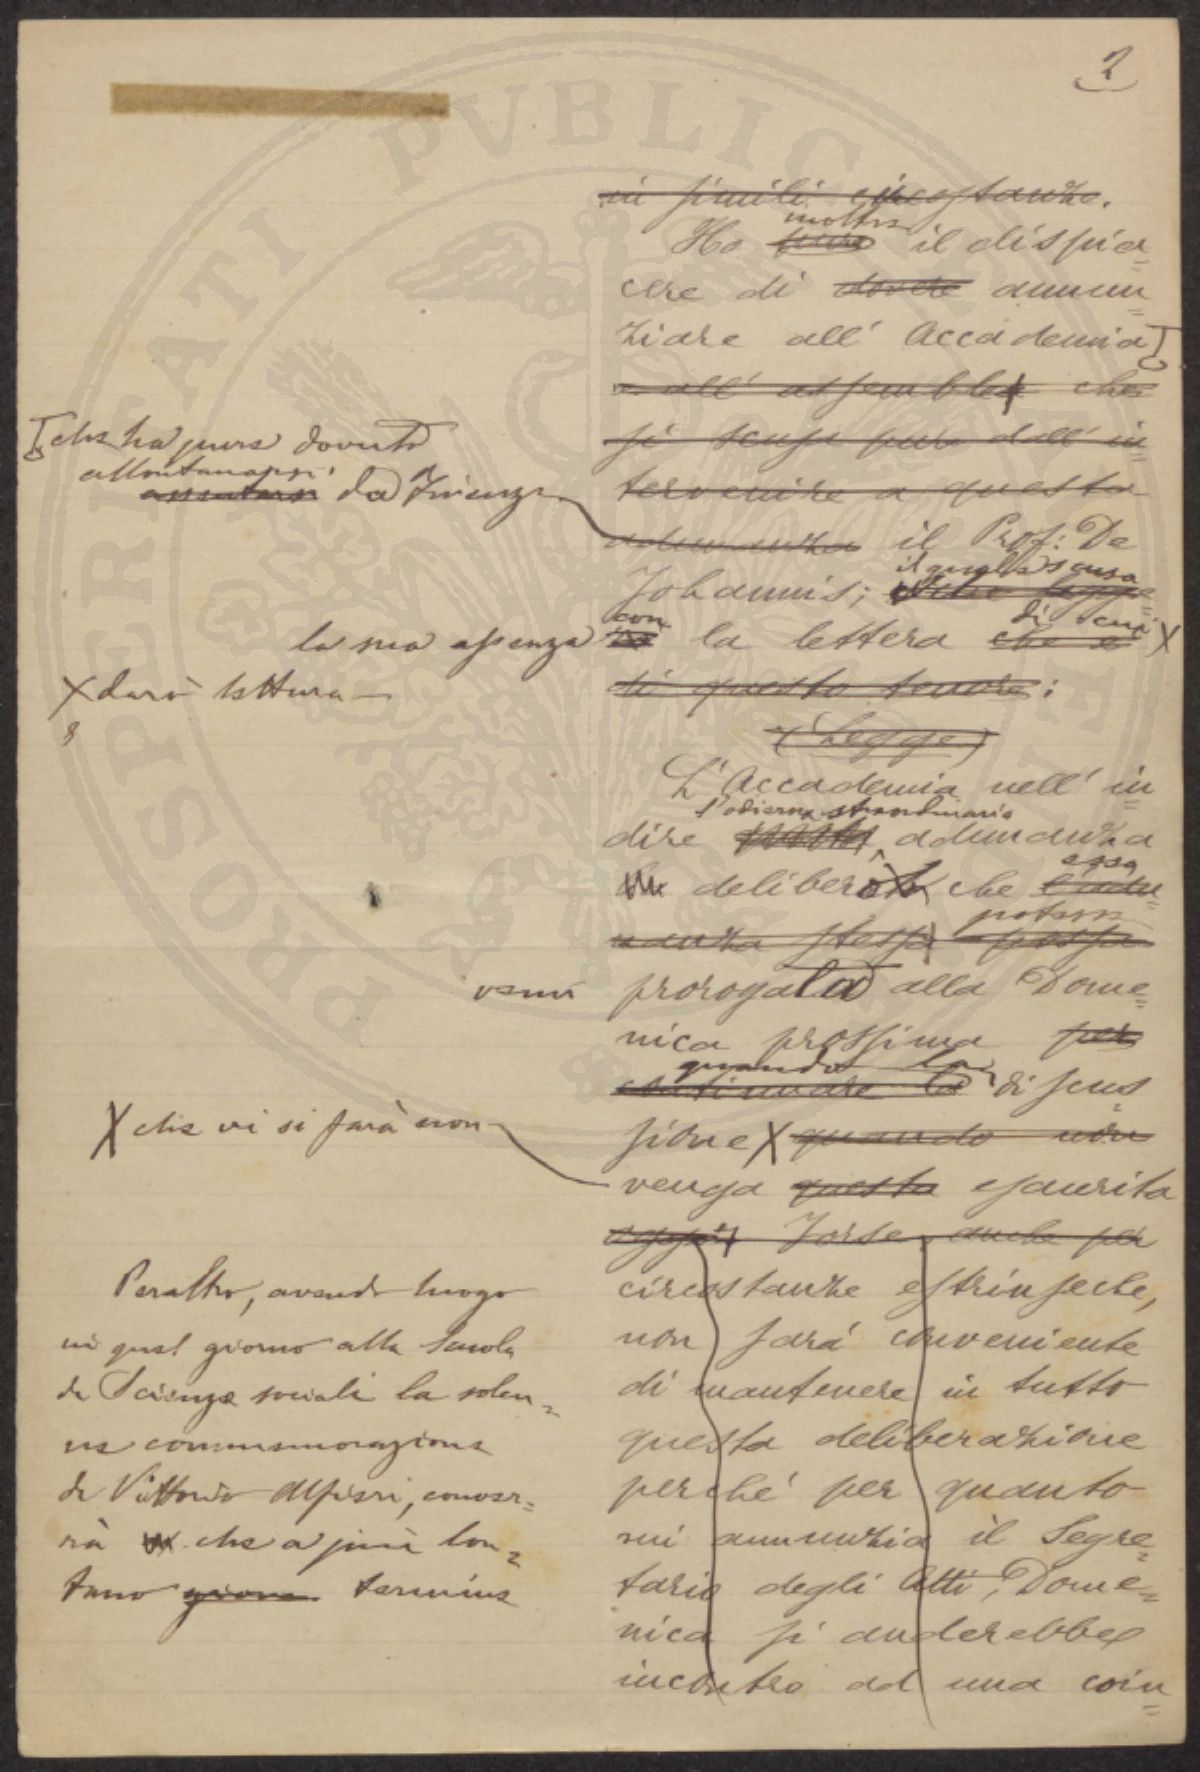 2
in simili circostanze.
inoltre
Ho pure il dispia=
cere di dovere annun=
ziare all' Accademia
e all' assemblea che
si scusa pure dall' in
tervenire a questa
adunanza il Prof: De
il quale scusa
Johannis; che legge
con di cui
la lettera che è X
di questo tenore:
(Legge)
L' Accademia nell' in=
l'odierna straordinaria
dire adunanza
essa
deliberò che l'adu=
potesse
nanza stessa possa
prorogata alla Dome=
nica prossima per
quando la
continuare la discus=
sione X quando non
venga questa esaurita
oggi. Forse, anche per
circostanze estrinseche,
non sarà conveniente
di mantenere in tutto
questa deliberazione
perché per quanto
mi annunzia il Segre=
tario degli Atti, Dome=
nica si anderebbe
incontro ad una coin=
che ha pure dovuto
allontanarsi
assentarsi da Firenze
la sua assenza
X darò lettura
venir
X che vi si farà non
Peraltro, avendo luogo
in quel giorno alla Scuola
di Scienze sociali la solen=
ne commemorazione
di Vittorio Alfieri, conver=
rà che a più lon=
tano giorno termine
PROSPERITATI PVBLICAE